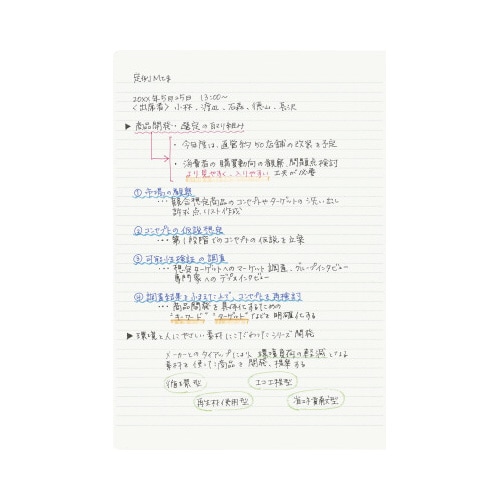 定例MTG
20XX年5月25日 13:00〜
〈出席者〉小林、渡辺、石森、横山、長沢
▶ 商品開発・選定の取り組み
・今年度は、直営約50店舗の改装を予定
・消費者の購買動向の観察、問題点検討
より見やすく、入りやすい 工夫が必要
① 市場の観察
… 競合想定商品のコンセプトやターゲットの洗い出し
訴求点リスト作成
② コンセプトの仮説想定
… 第1段階でのコンセプトの仮説を立案
③ 可能性検証の調査
… 想定ターゲットへのマーケット調査、グループインタビュー
専門家へのデプスインタビュー
④ 調査結果をふまえた上で、コンセプトを再検討
… 商品開発を具体化するための
"キーワード" "ターゲット"などを明確化する
▶ 環境と人にやさしい素材にこだわったシリーズ開発
メーカーとのタイアップにより、環境負荷の軽減となる
素材を使った商品を開発、提案する
循環型 エコ工程型
再生材使用型 省エネ貢献型